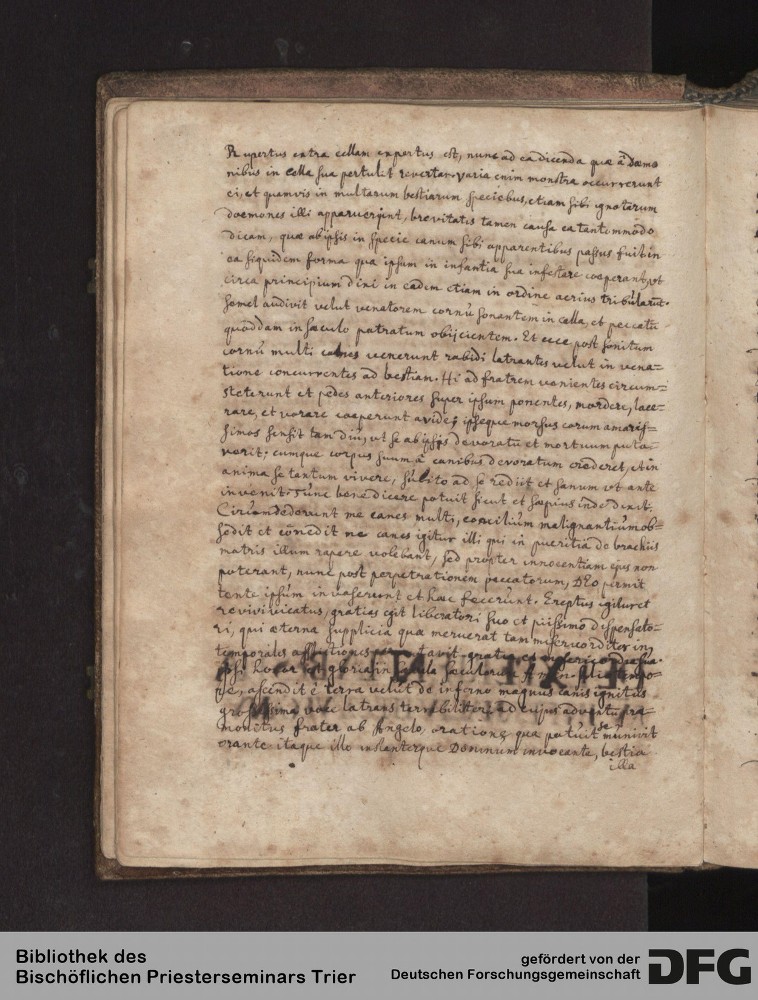 Rupertus extra cellam expertus est, nunc ad ea dicenda quæ à Dæmo
nibus in cella sua pertulit revertar. varia enim monstra occurrerunt
ei, et quamvis in multarum bestiarum speciebus, etiam sibi ignotarum
dæmones illi apparuerint, brevitatis tamen causa ea tantummodo
dicam, quæ ab ipsis in specie canum sibi apparentibus passus fuit in
ea siquidem forma qua ipsum in infantia sua infestare cœperant, ut
circa principium dixi in eadem etiam in ordine acrius tribulatur.
semel audivit velut venatorem cornu sonantem in cella, et peccatũ
quoddam in sæculo patratum obijcientem. Et ecce post sonitum
cornu multi canes venerunt rabidi latrantes velut in vena=
tione concurrentes ad bestiam. Hi ad fratrem venientes circum=
steterunt et pedes anteriores super ipsum ponentes, mordere, lace=
rare, et vorare cœperunt avide; ipseque morsus eorum amaris=
simos sensit tam diu, ut se ab ipsis devoratũ et mortuum puta=
verit; cumque corpus suum à canibus devoratum crederet, et in
anima se tantum vivere, subito ad se rediit et sanum ut ante
invenit. Tunc benedicere potuit sicut et sæpius inde dixit.
Circumdederunt me canes multi, concilium malignantiũ ob=
sedit et comedit me canes igitur illi qui in pueritia de brachiis
matris illum rapere volebant, sed propter innocentiam ejus non
poterant, nunc post perpetrationem peccatorum, DEo permit
tente ipsum invaserunt et hæc fecerunt. Ereptus igitur et
revivivicatus, gratias egit liberatori suo et piissimo dispensato=
ri, qui æterna supplicia quæ meruerat tam misericorditer in
temporales afflictiones
ipsi honor et gloria in sæcula sæculorum Amen.
re, ascendit è terra velut de inferno magnus canis ignitus
voce latrans terribiliter, ad cujus adventũ præ=
monitus frater ab Angelo, oratione qua potuit se munivit
orante itaque illo instanterque Dominum invocante, bestia
illa
Bibliothek des
Bischöflichen Priesterseminars Trier
gefördert von der
Deutschen Forschungsgemeinschaft
DFG